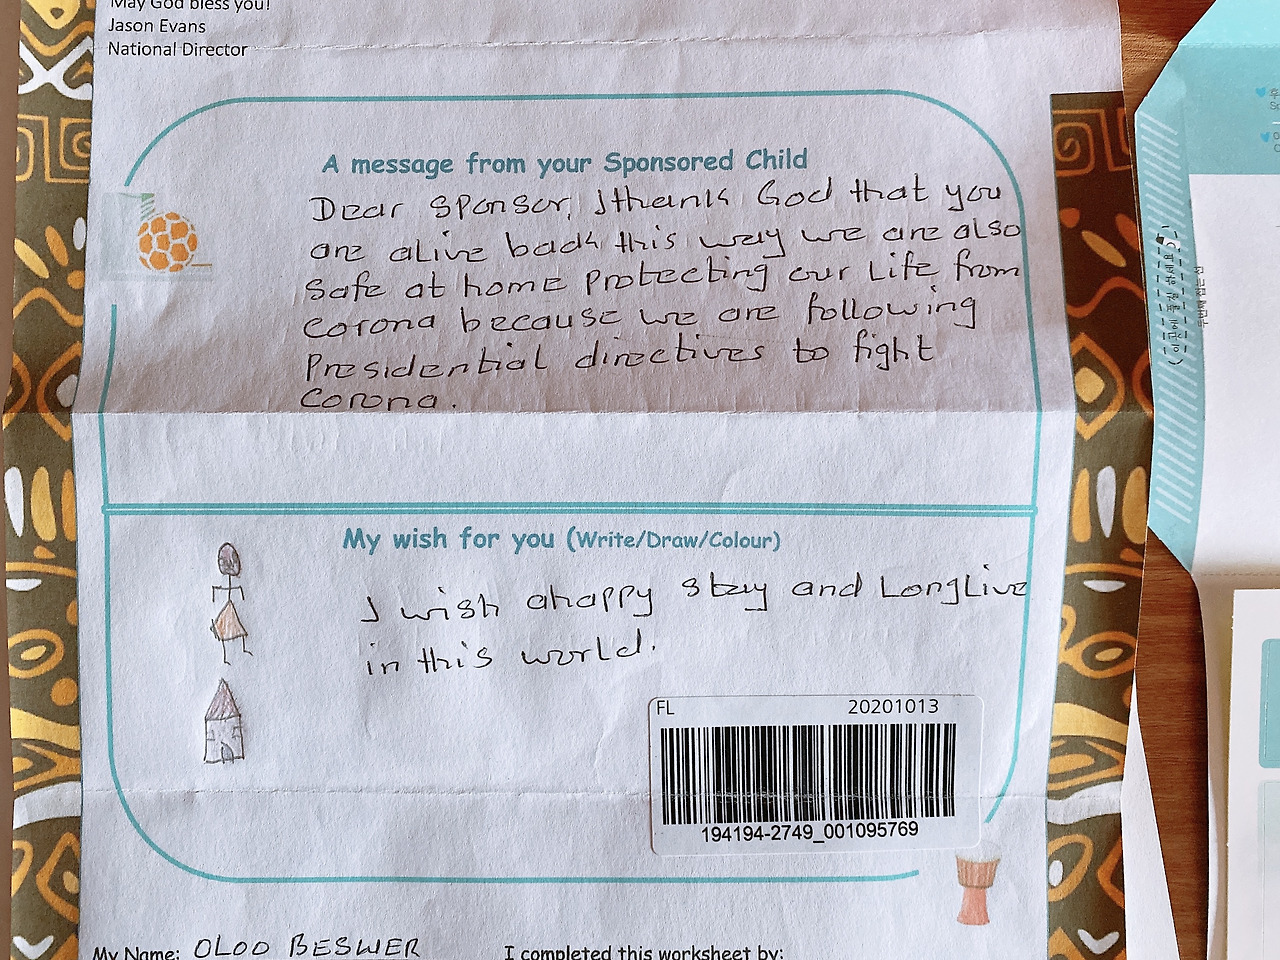 May God bless you!
Jason Evans
National Director
A message from your Sponsored Child
Dear Sponsor, I thank God that you
are alive back this way we are also
safe at home protecting our Life from
corona because we are following
Presidential directives to fight
corona.
My wish for you (Write/Draw/Colour)
I wish ahappy stay and LongLive
in this world.
FL 20201013
194194-2749_001095769
My Name: OLOO BESWER
I completed this worksheet by:
(이곳에 풀칠 하세요)